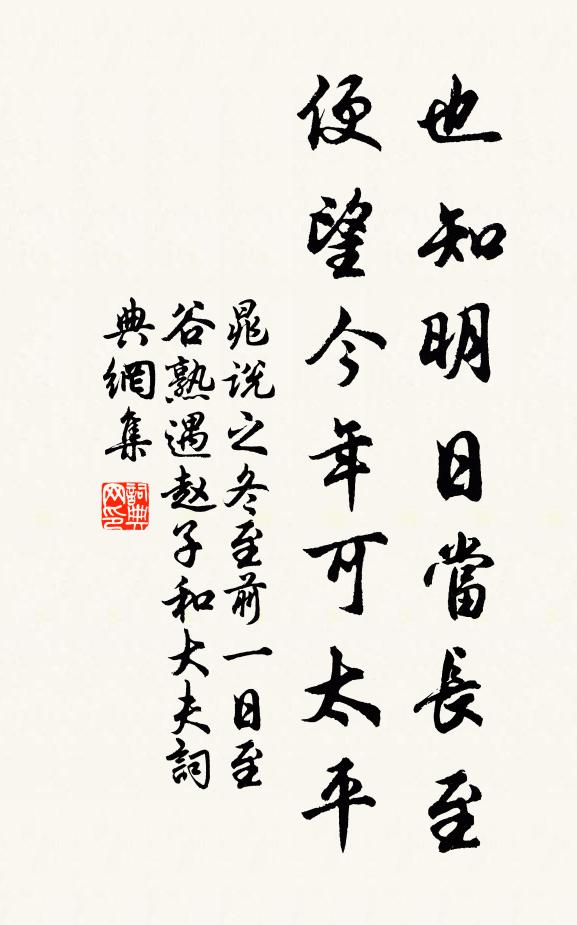 也知明日當長至
便望今年可太平
晁説之冬至前一日至
谷熟遇赵子和大夫詞
典網集
詞典网印